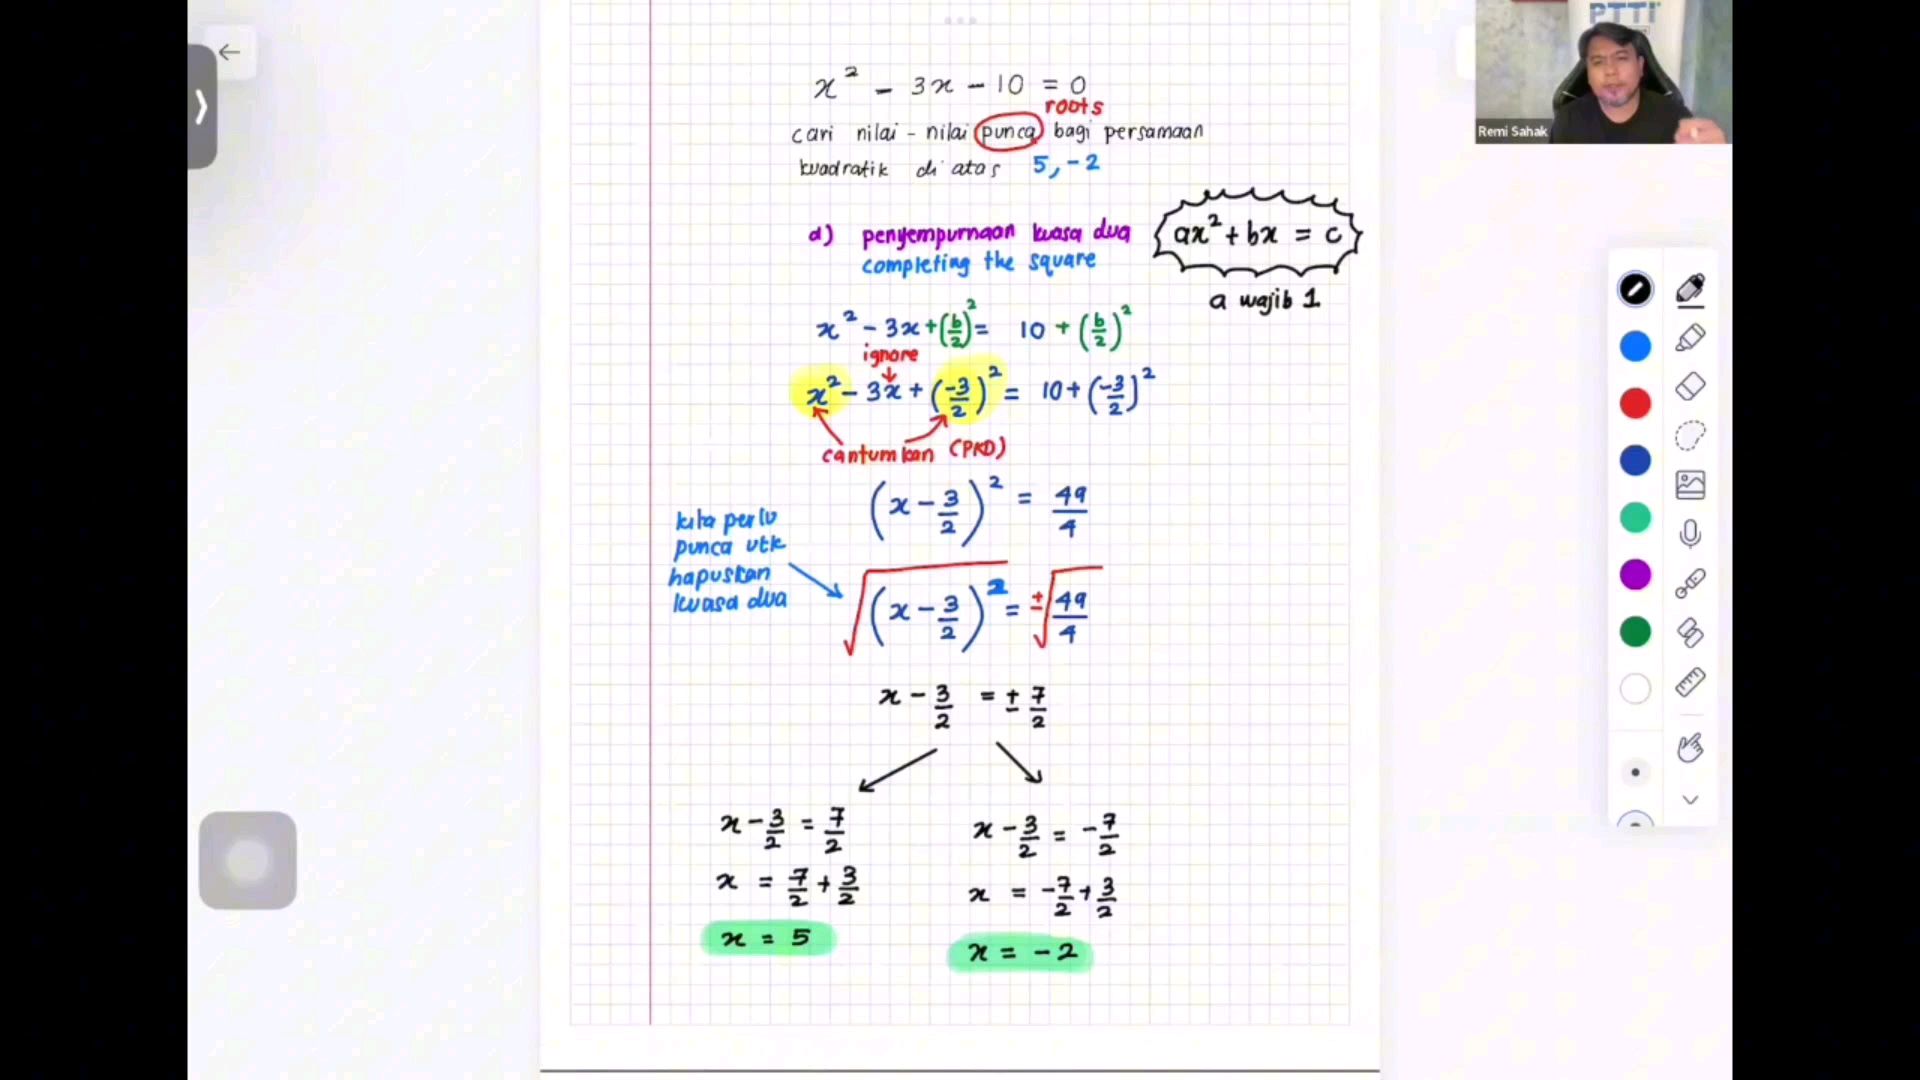 PTTI
Remi Sahak
x² - 3x - 10 = 0
roots
cari nilai - nilai punca bagi persamaan
kuadratik di atas 5, -2
d) penyempurnaan kuasa dua
completing the square
ax² + bx = c
a wajib 1
x² - 3x + (b/2)² = 10 + (b/2)²
ignore
x² - 3x + (-3/2)² = 10 + (-3/2)²
cantumkan (PKD)
(x - 3/2)² = 49/4
kita perlu
punca utk
hapuskan
kuasa dua
√(x - 3/2)² = ±√49/4
x - 3/2 = ± 7/2
x - 3/2 = 7/2
x = 7/2 + 3/2
x = 5
x - 3/2 = -7/2
x = -7/2 + 3/2
x = -2